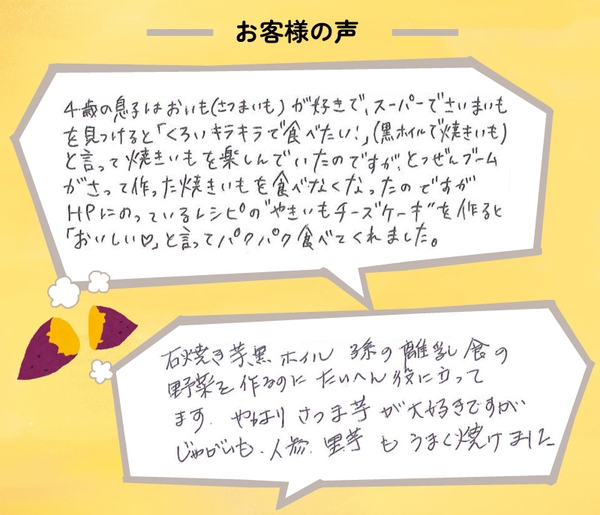 お客様の声
4歳の息子はおいも(さつまいも)が好きで、スーパーでさいまいも
を見つけると「くろいキラキラで食べたい!」(黒ホイルで焼きいも)
と言って焼きいもを楽しんでいたのですが、とつぜんブーム
がさって作った焼きいもを食べなくなったのですが
HPにのっているレシピの"やきいもチーズケーキ"を作ると
「おいしい♡」と言ってパクパク食べてくれました。
石焼き芋黒ホイル 孫の離乳食の
野菜を作るのに たいへん役に立って
ます. やはり さつま芋が大好きですが
じゃがいも、人参、里芋 も うまく焼けました